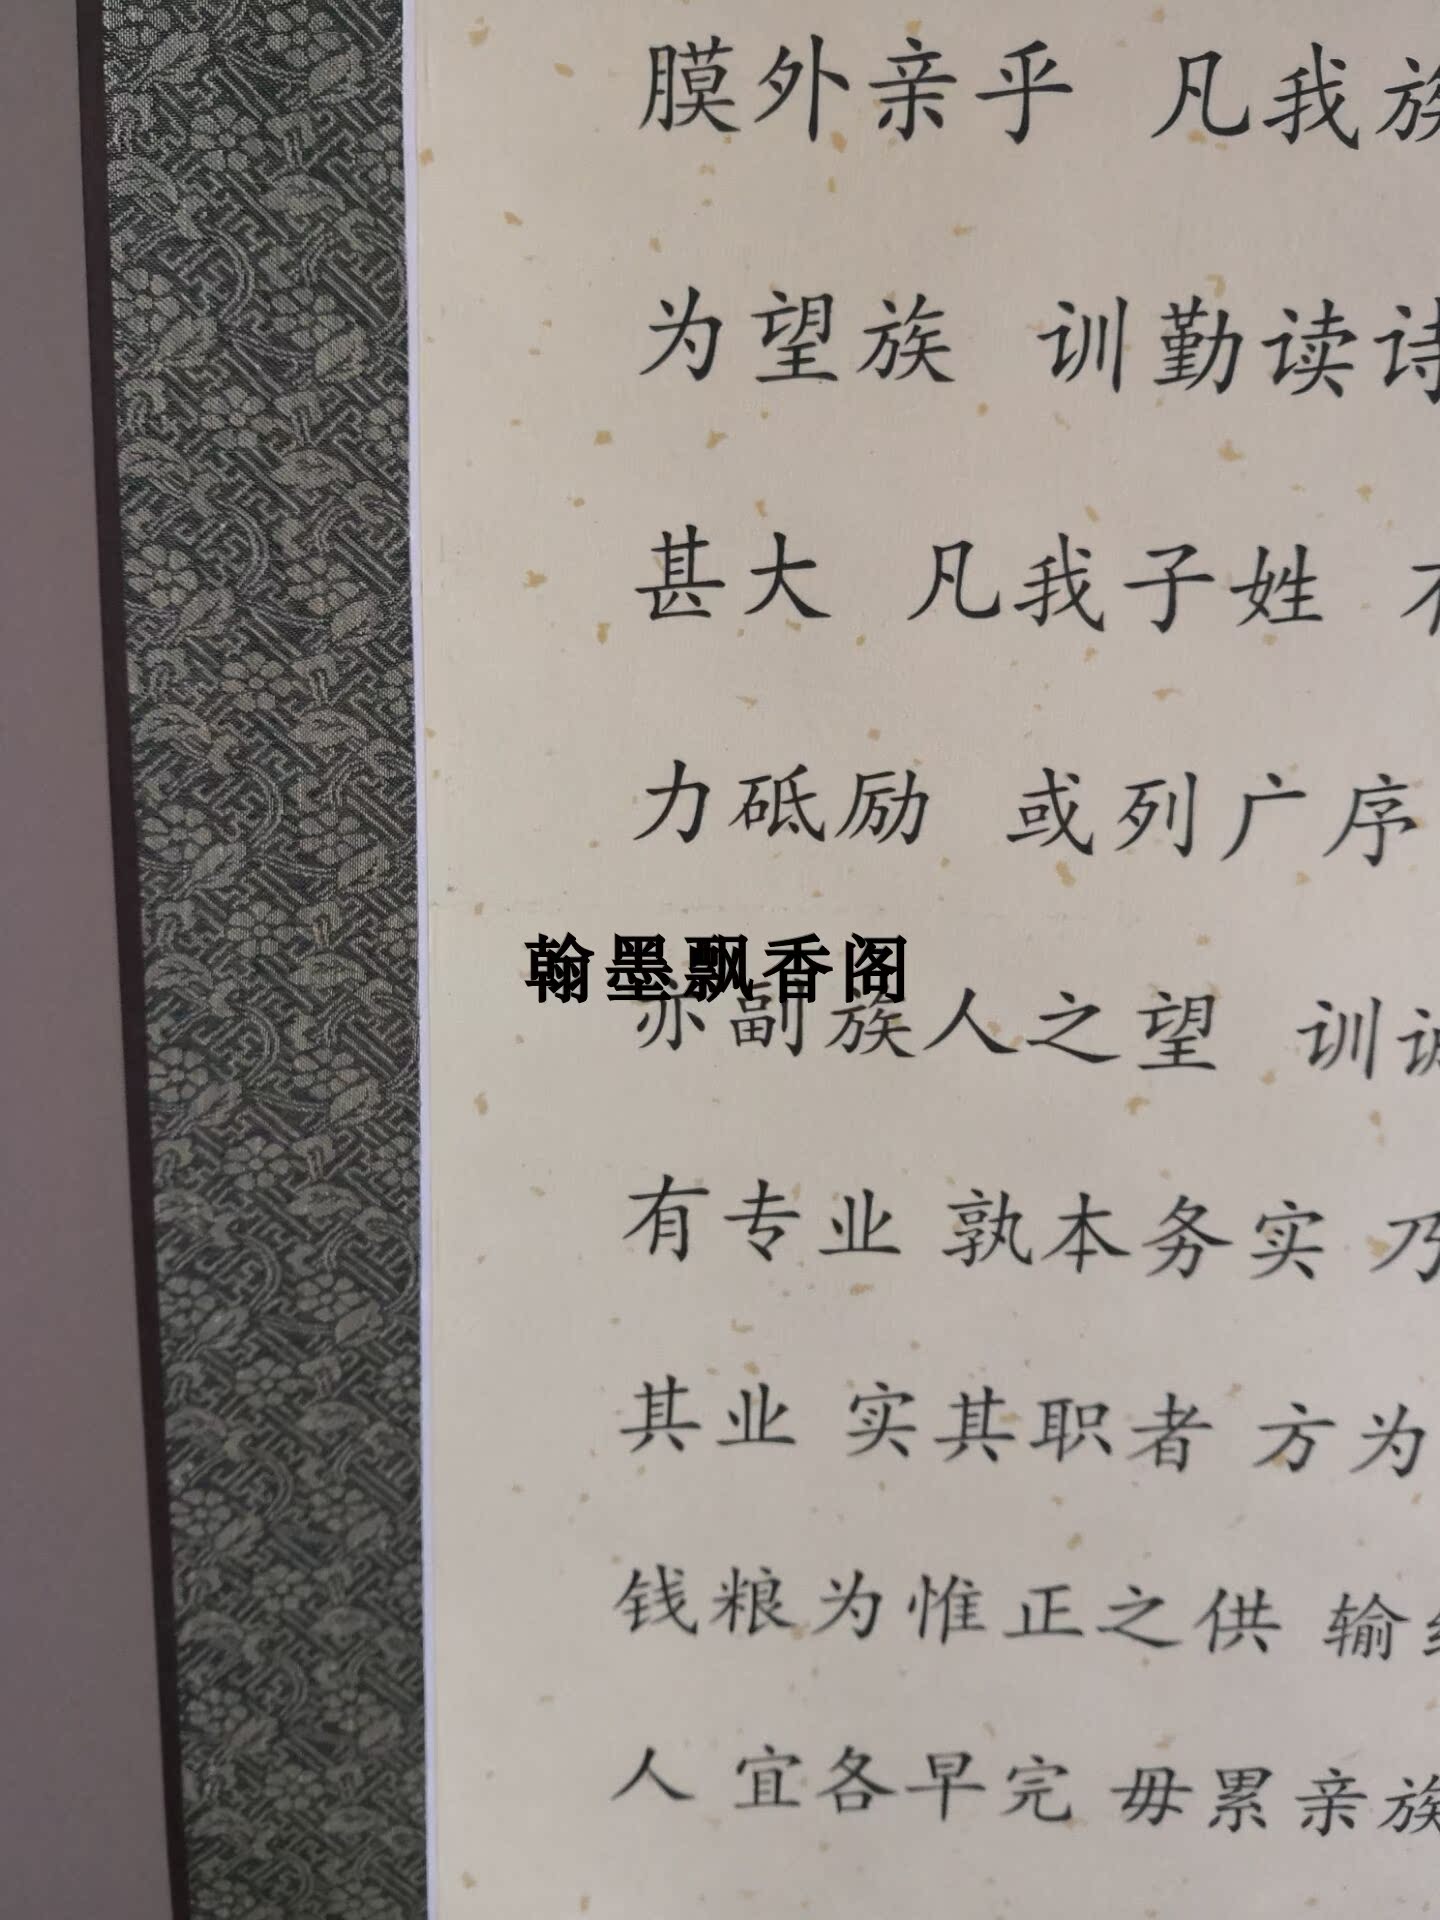 膜外亲乎 凡我族
为望族 训勤读诗
甚大 凡我子姓
力砥励 或列广序
翰墨飘香阁
亦副族人之望 训诚
有专业 孰本务实 乃
其业 实其职者 方为
钱粮为惟正之供 输
人 宜各早完 毋累亲族